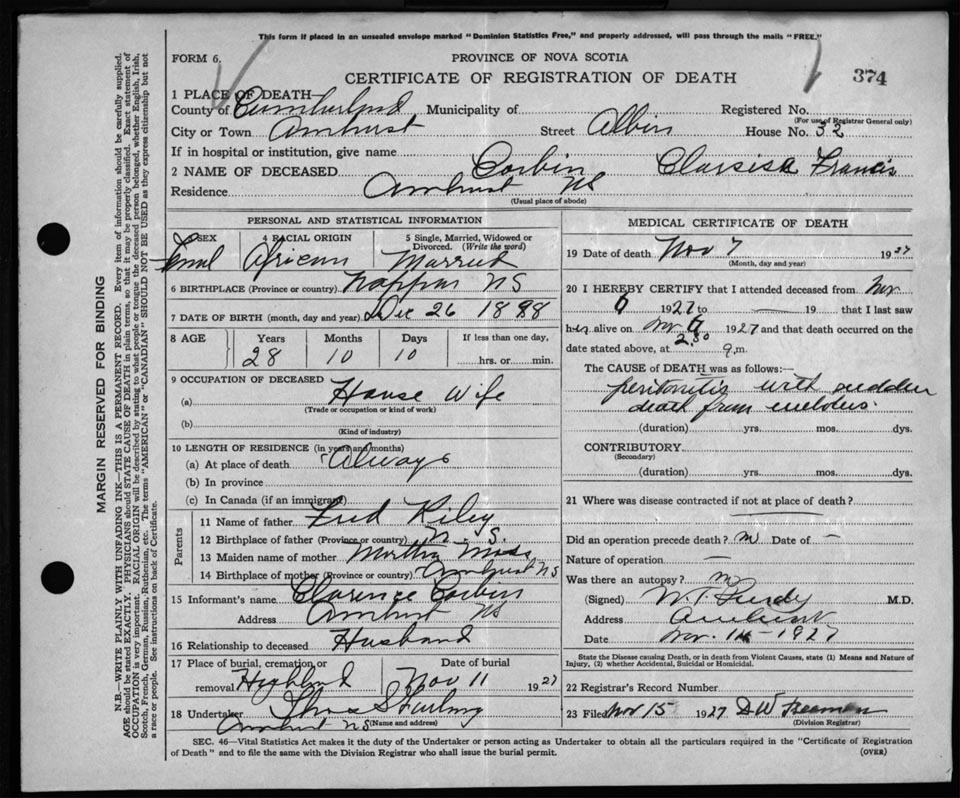 This form if placed in an unsealed envelope marked "Dominion Statistics Free," and properly addressed, will pass through the mails "FREE."
FORM 6.
PROVINCE OF NOVA SCOTIA
CERTIFICATE OF REGISTRATION OF DEATH
374
1 PLACE OF DEATH—
County of Cumberland Municipality of Registered No.
(For use of Registrar General only)
City or Town Amherst Street Albion House No. 32
If in hospital or institution, give name
2 NAME OF DECEASED Corbin Francis
Residence Amherst NS
(Usual place of abode)
PERSONAL AND STATISTICAL INFORMATION
SEX 4 RACIAL ORIGIN 5 Single, Married, Widowed or Divorced. (Write the word)
African Married
6 BIRTHPLACE (Province or country) Nappan NS
7 DATE OF BIRTH (month, day and year) Dec 26 1898
8 AGE Years Months Days If less than one day,
28 10 10 hrs. or min.
9 OCCUPATION OF DECEASED
(a) House Wife
(Trade or occupation or kind of work)
(b)
(Kind of industry)
10 LENGTH OF RESIDENCE (in years and months)
(a) At place of death Always
(b) In province
(c) In Canada (if an immigrant)
Parents
11 Name of father Fred Riley
12 Birthplace of father (Province or country) N. S.
13 Maiden name of mother Martha Moss
14 Birthplace of mother (Province or country) Amherst NS
15 Informant's name Clarence Corbin
Address Amherst NS
16 Relationship to deceased Husband
17 Place of burial, cremation or removal Highland
Date of burial Nov 11 1927
18 Undertaker
Amherst NS (Name and address)
MEDICAL CERTIFICATE OF DEATH
19 Date of death Nov 7 1927
(Month, day and year)
20 I HEREBY CERTIFY that I attended deceased from Nov
6 1927 to — 19 that I last saw
her alive on Nov 6 1927 and that death occurred on the
date stated above, at 2.30 m.
The CAUSE of DEATH was as follows:—
peritonitis with sudden
death from embolus.
(duration) yrs. mos. dys.
CONTRIBUTORY
(Secondary)
(duration) yrs. mos. dys.
21 Where was disease contracted if not at place of death?
Did an operation precede death? no Date of —
Nature of operation —
Was there an autopsy? no
(Signed) W. T. Purdy M.D.
Address Amherst
Date Nov. 14 - 1927
State the Disease causing Death, or in death from Violent Causes, state (1) Means and Nature of Injury, (2) whether Accidental, Suicidal or Homicidal.
22 Registrar's Record Number
23 Filed Nov 15 1927 D W Freeman
(Division Registrar)
SEC. 46—Vital Statistics Act makes it the duty of the Undertaker or person acting as Undertaker to obtain all the particulars required in the "Certificate of Registration
of Death" and to file the same with the Division Registrar who shall issue the burial permit. (OVER)
MARGIN RESERVED FOR BINDING
N.B.—WRITE PLAINLY WITH UNFADING INK—THIS IS A PERMANENT RECORD. Every item of information should be carefully supplied.
AGE should be stated EXACTLY. PHYSICIANS should STATE CAUSE OF DEATH in plain terms, so that it may be properly classified. Exact statement of
OCCUPATION is very important. RACIAL ORIGIN will be described by stating to what people or tongue the deceased person belonged, whether English, Irish,
Scotch, French, German, Russian, Ruthenian, etc. The terms "AMERICAN" or "CANADIAN" SHOULD NOT BE USED as they express citizenship but not
a race or people. See instructions on back of Certificate.